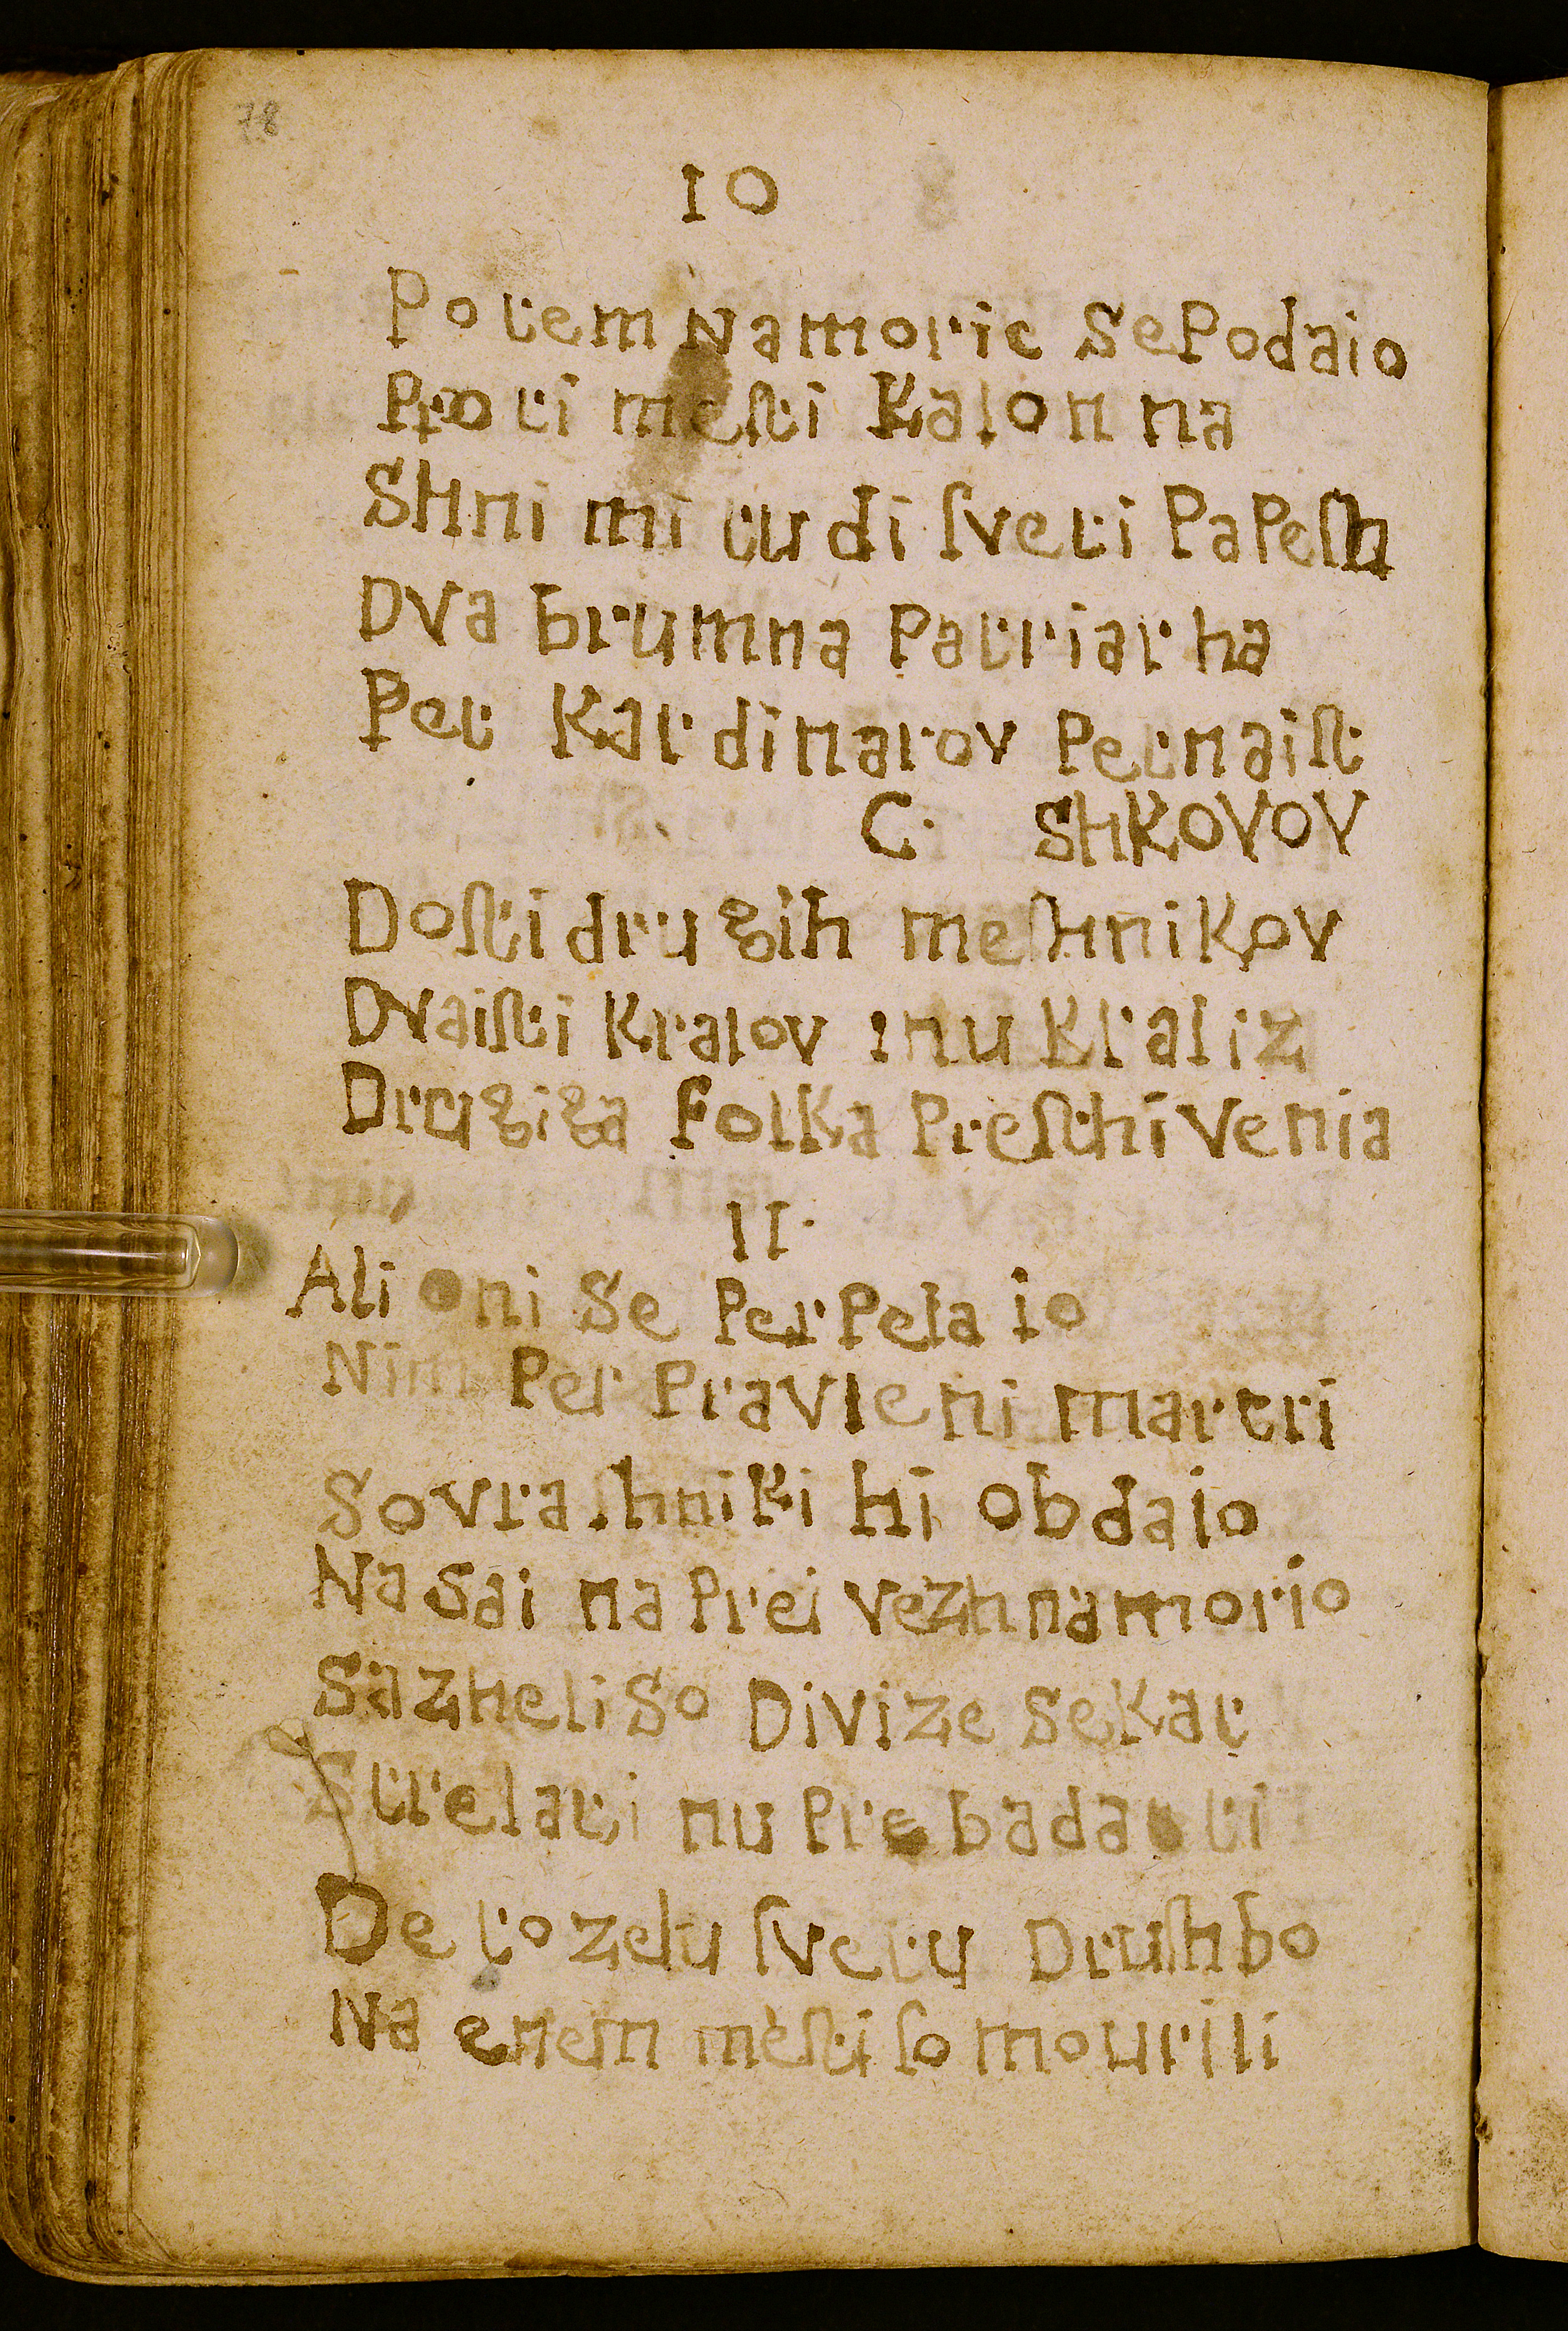 78
10
Potem na morie se Podaio
Proti meſti Kalonna
SHni mi tudi ſveti PaPeſh
DVa brumna Patriarha
Pet Kardinarov Petnaiſt
C. SHKOVOV
Doſti drugih meſhniKov
Dvaiſti Kralov inu Kraliz
Drugiga folKa Preſhtivenia
11.
Ali oni Se PerPelaio
Nim Per Pravleni martri
Sovraſhniki hi obdaio
Nasai naPrei vezh na morio
Sazheli So Divize seKat
Strelati nu Prebadati
De to zelu ſvetu Druſhbo
Na enem meſti ſo mourili